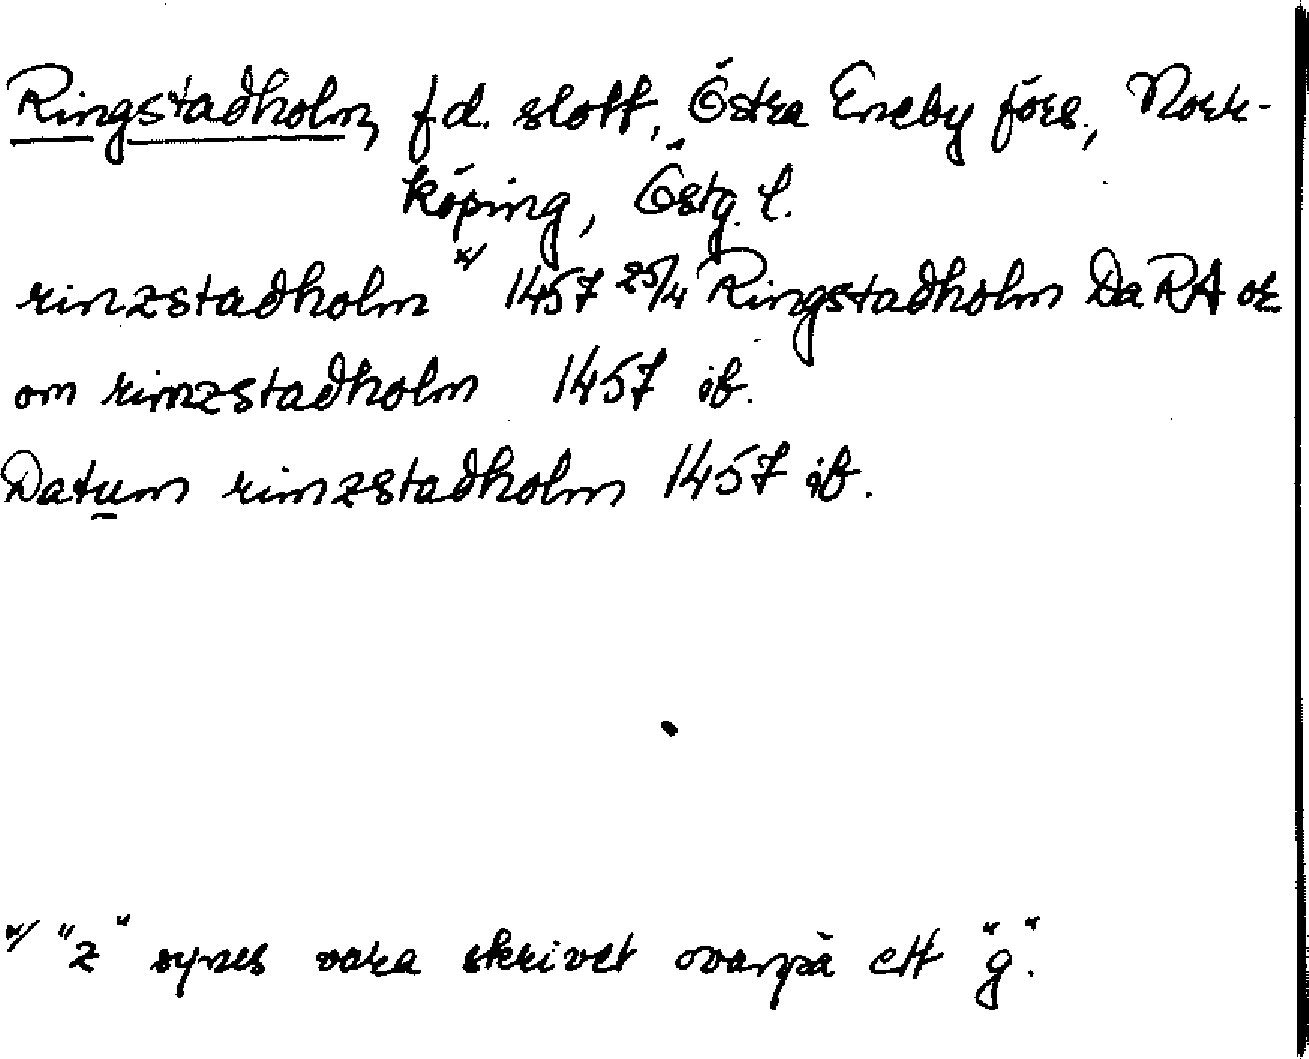 Ringstadholm, f.d. slott, Östra Eneby förs., Norr-
köping, Östg. l.
rinzstadholm x/ 1457 25/4 Ringstadholm DaRA or
om rinzstadholm 1457 ib.
Datum rinzstadholm 1457 ib.
x/ "z" synes vara skrivet ovanpå ett "g".